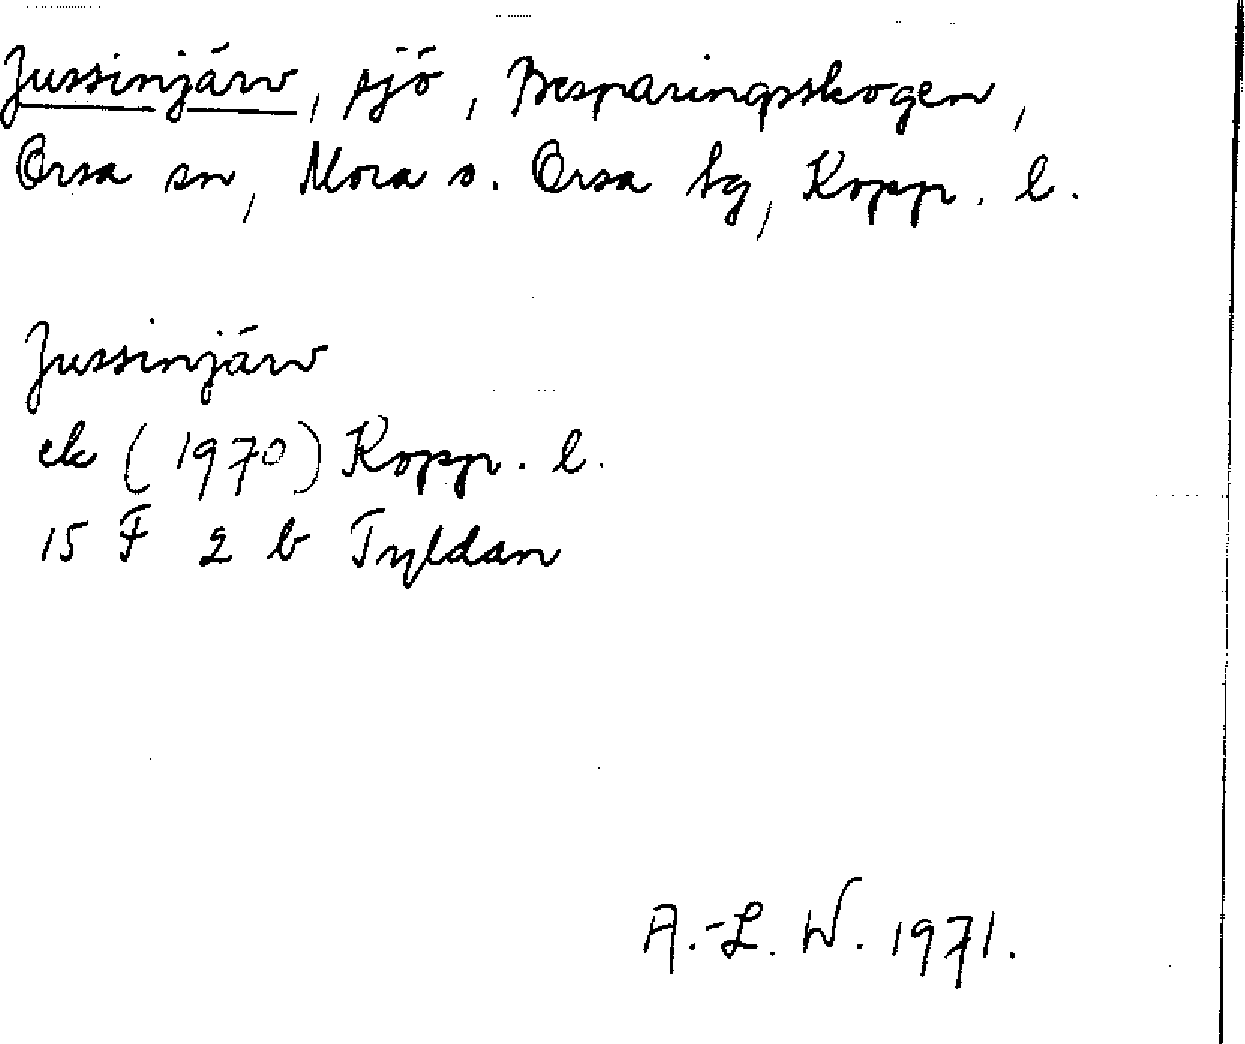 Jussinjärv, sjö, Besparingsskogen,
Orsa sn, Mora o. Orsa tg, Kopp. l.
Jussinjärv
ek (1970) Kopp. l.
15 F 2 b Tyldan
A.-L. W. 1971.